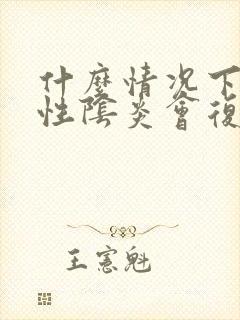 什麼情况下
性陰炎會復
王憲魁